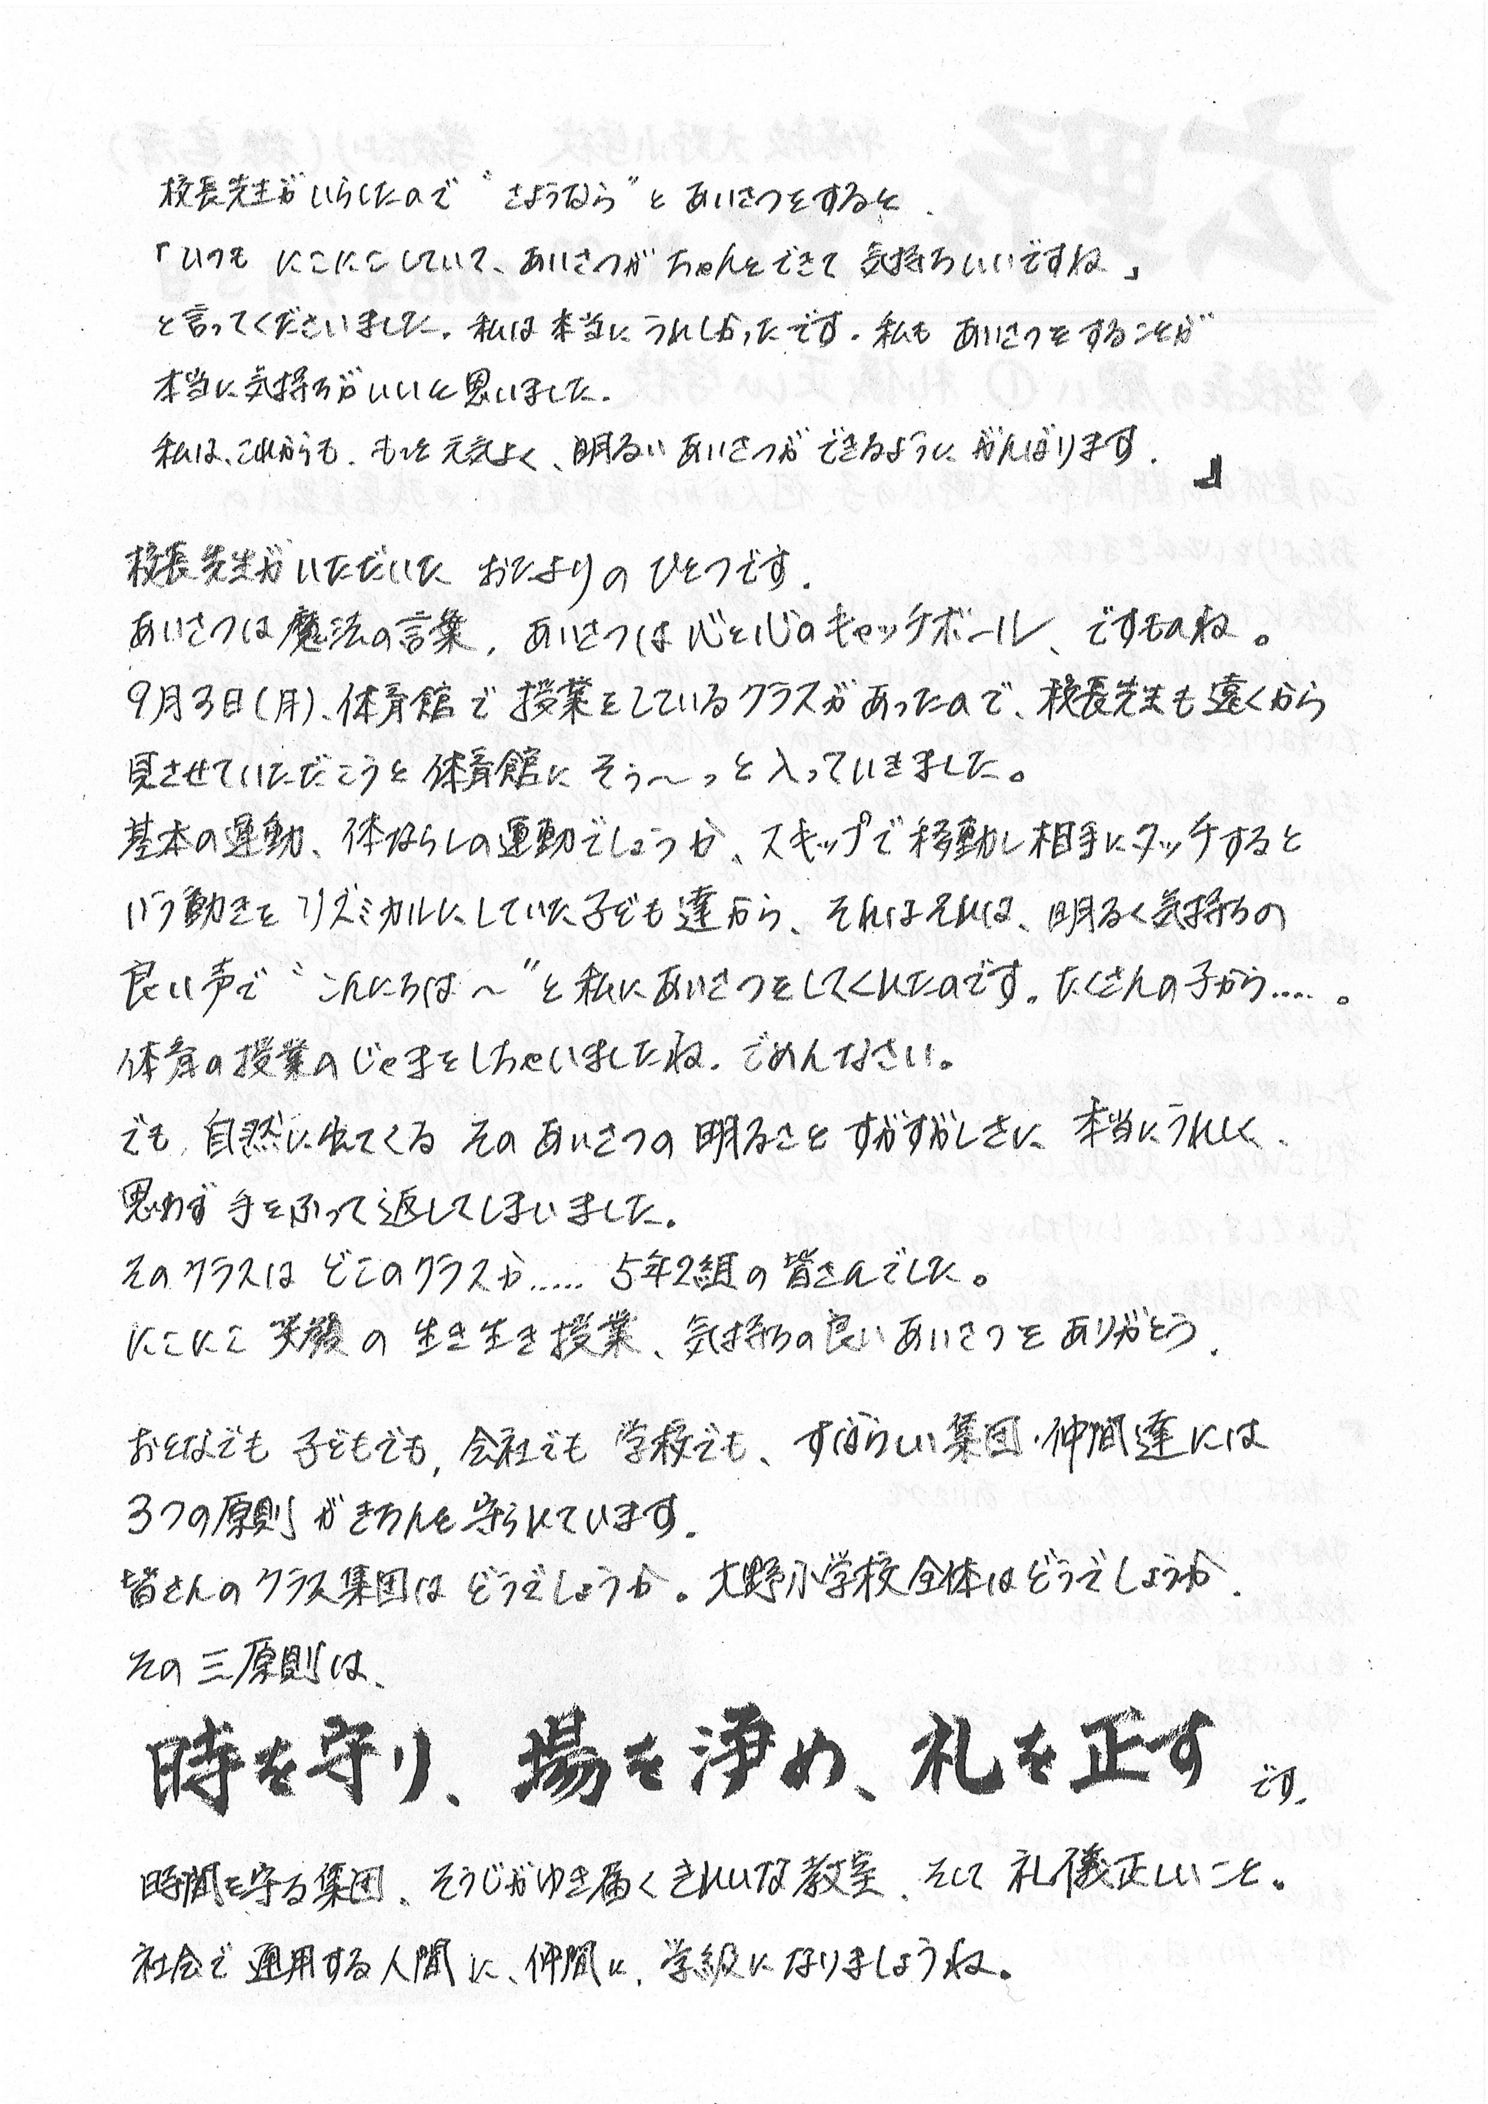 校長先生がいらしたので〝さようなら〟とあいさつをすると、
「いつも にこにこしていて、あいさつが ちゃんとできて 気持ちいいですね」
と言ってくださいました。私は本当にうれしかったです。私も あいさつをすることが
本当に気持ちがいいと思いました。
私は、これからも、もっと元気よく、明るい あいさつが できるように がんばります。』
校長先生がいただいた おたよりの ひとつです。
あいさつは魔法の言葉、あいさつは心と心のキャッチボール、ですものね。
9月3日(月)、体育館で授業をしているクラスがあったので、校長先生も遠くから
見させていただこうと体育館に そぅ〜っと入っていきました。
基本の運動、体ならしの運動でしょうか、スキップで移動し相手にタッチすると
いう動きをリズミカルにしていた子ども達から、それはそれは、明るく気持ちの
良い声で〝こんにちは〜〟と私にあいさつをしてくれたのです。たくさんの子から‥‥。
体育の授業のじゃまをしちゃいましたね。ごめんなさい。
でも、自然に出てくる そのあいさつの 明るさと すがすがしさに 本当にうれしく、
思わず手をふって返してしまいました。
そのクラスは どこのクラスか‥‥‥ 5年2組の皆さんでした。
にこにこ 笑顔の 生き生き授業、気持ちの良いあいさつを ありがとう。
おとなでも 子どもでも、会社でも 学校でも、すばらしい集団・仲間達には
3つの原則がきちんと守られています。
皆さんのクラス集団は どうでしょうか。大野小学校全体はどうでしょうか。
その三原則は、
時を守り、場を浄め、礼を正す です。
時間を守る集団、そうじがゆき届くきれいな教室、そして 礼儀正しいこと。
社会で通用する人間に、仲間に、学級になりましょうね。